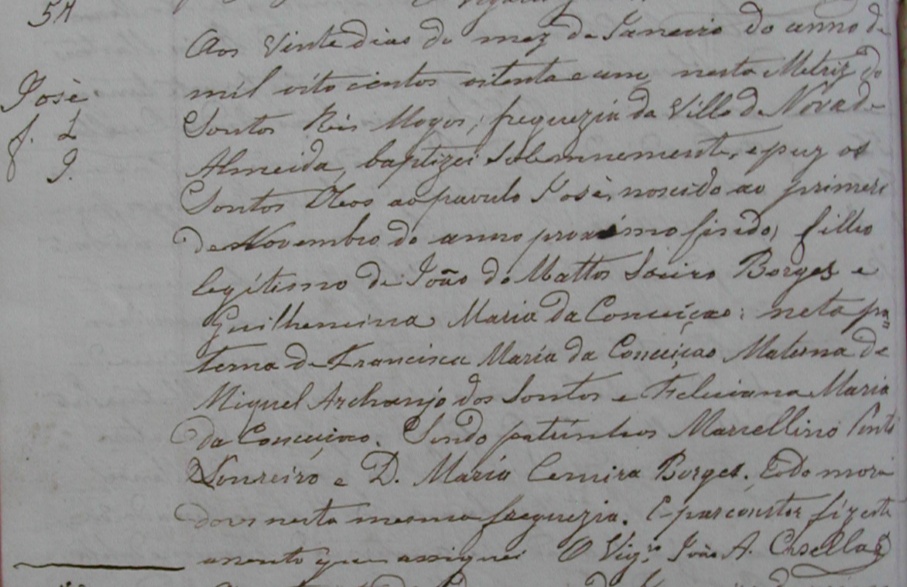 54
José
f. L
J.
Aos Vinte dias do mez de Janeiro do anno de
mil oito centos oitenta e um, nesta Matriz do
Santos Reis Magos, freguezia da Villa de Nova de
Almeida, baptizei solemnemente, e puz os
Santos Oleos ao parvulo José, nascido ao primero
de Novembro do anno proximo findo, filho
legitimo de João de Mattos Borges e
Guilhermina Maria da Conceiçao: neto pa=
terna de Francisca Maria da Conceiçao Materna de
Miguel Archanjo dos Santos e Feliciana Maria
da Conceiçao. Sendo padrinhos Marcellino Pinto
Loureiro e D. Maria Borges. Todo mora
dores nesta mesma freguezia. E para constar fiz este
assento que assignei O Vigrº João A.